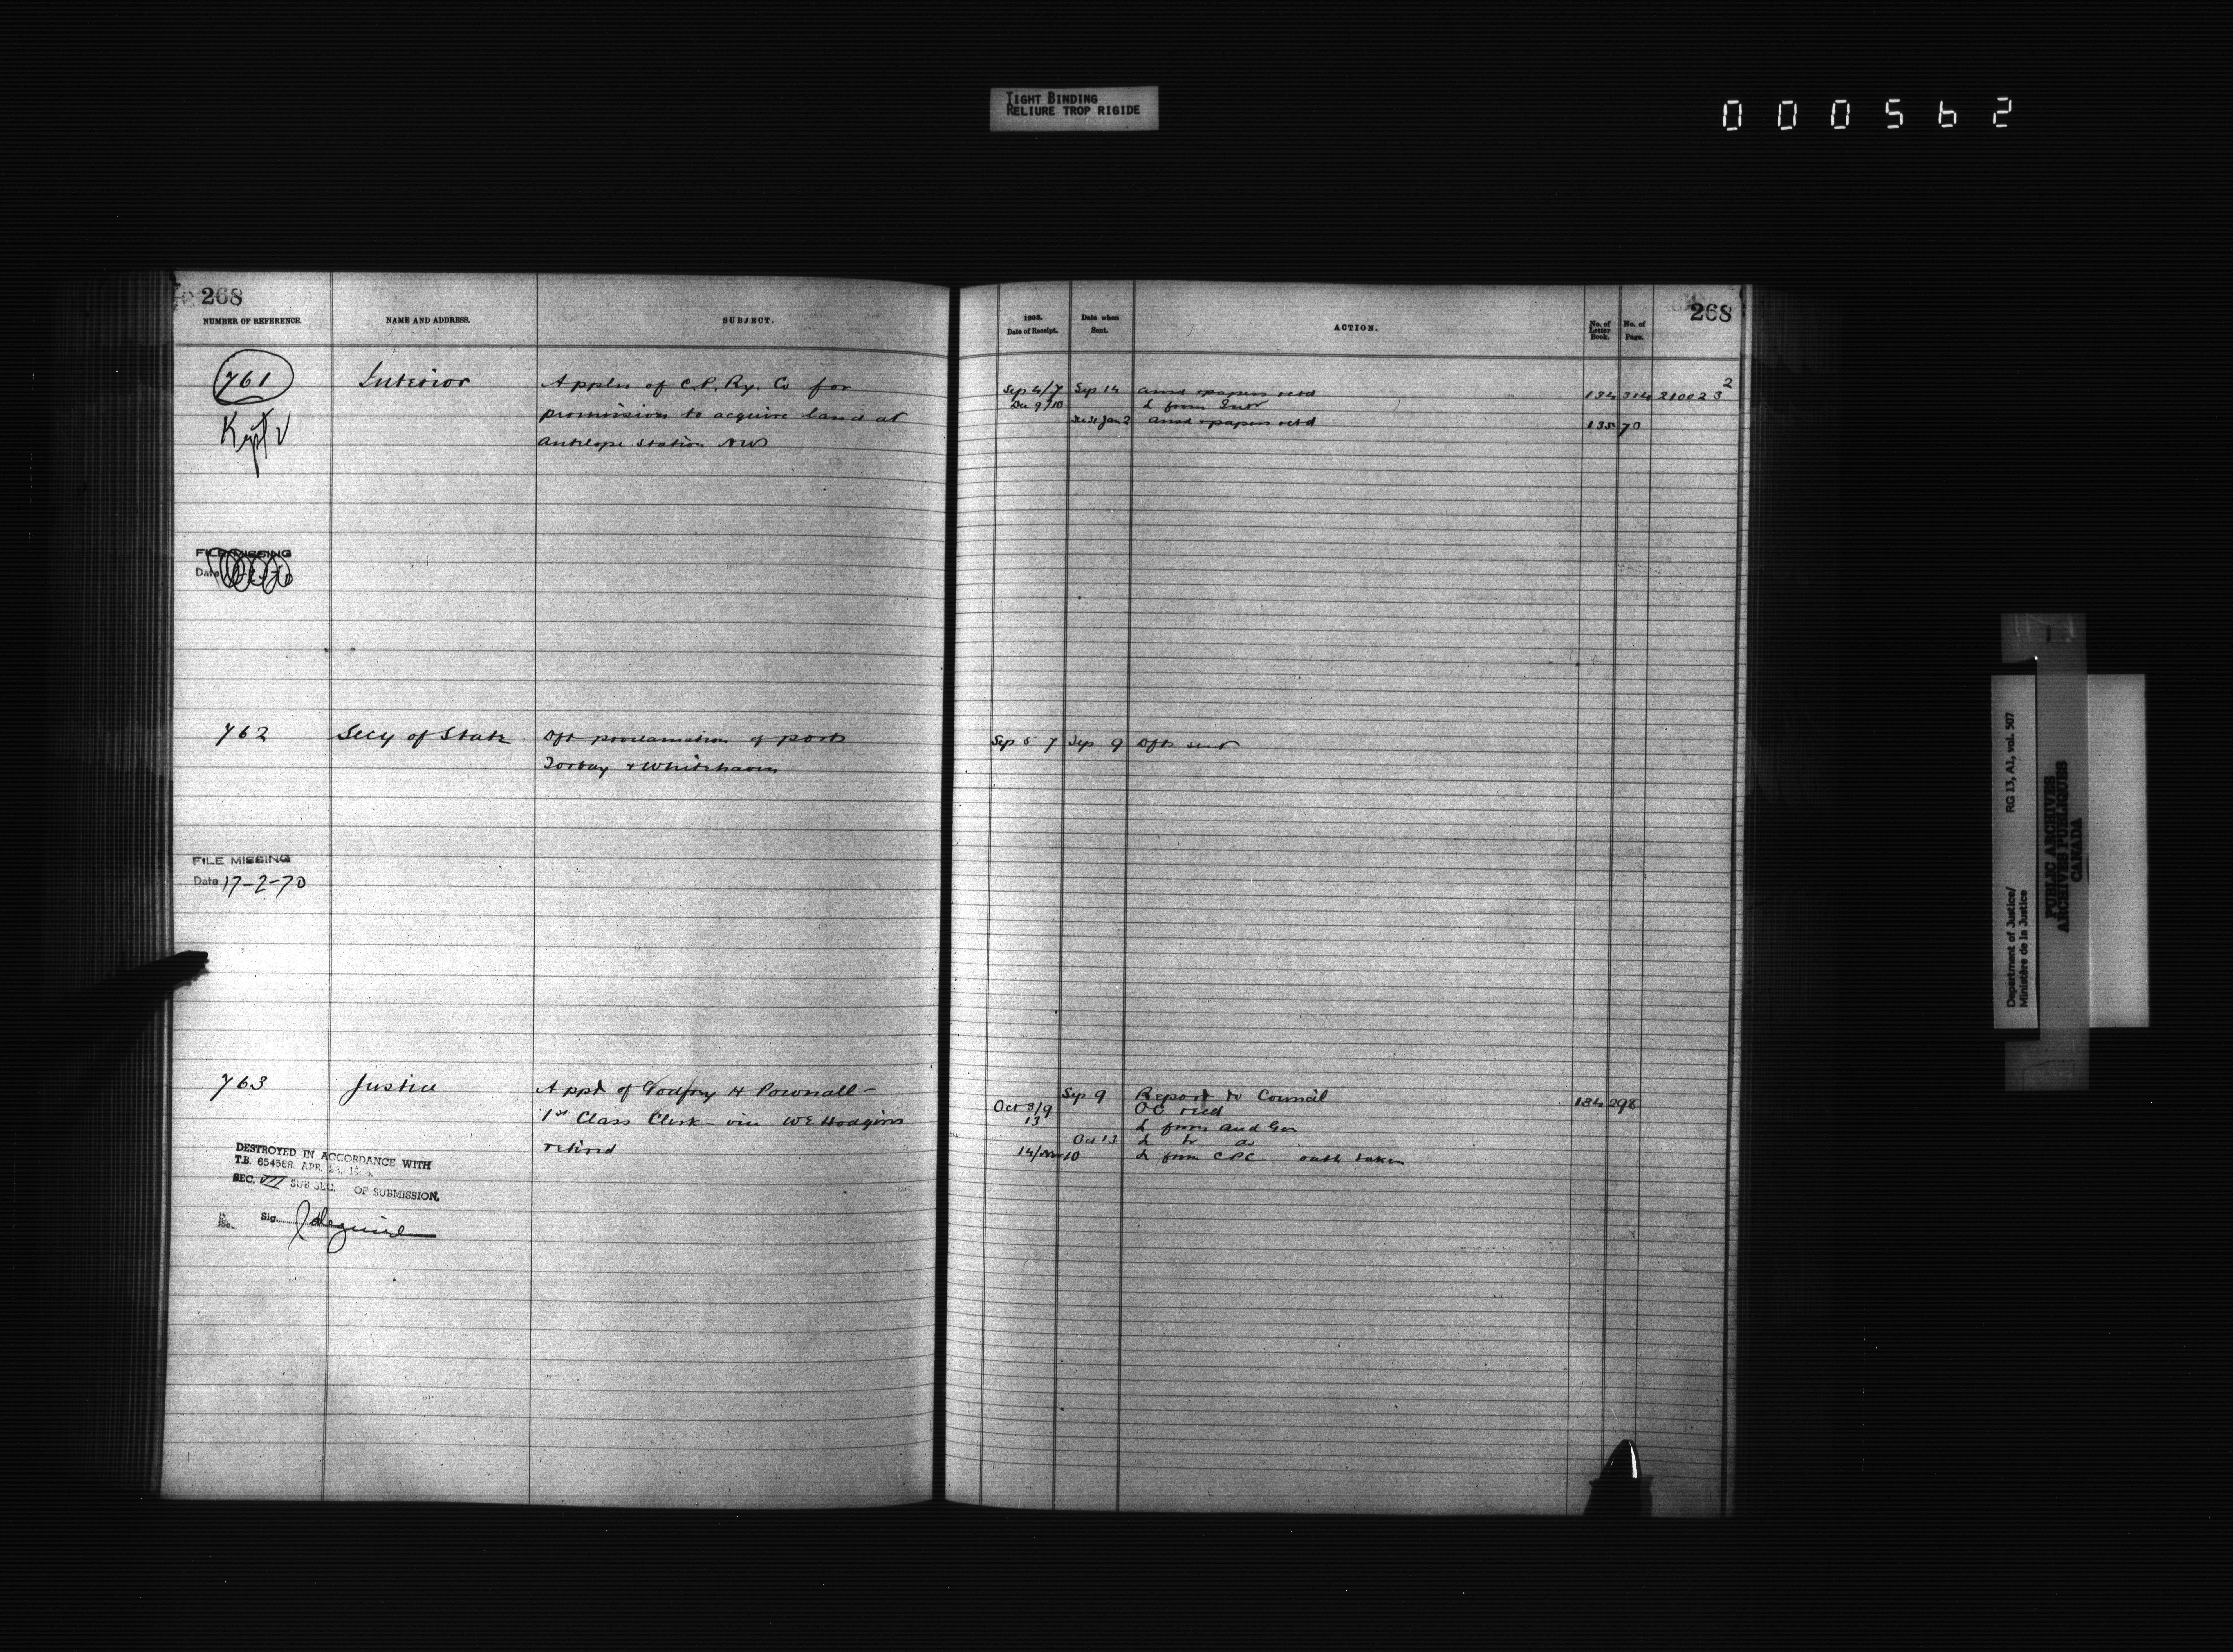 TIGHT BINDING
RELIURE TROP RIGIDE
000562
268
NUMBER OF REFERENCE.
NAME AND ADDRESS.
SUBJECT.
761
Interior
Appln of C.P. Ry. Co for
permission to acquire land at
Antelope Station NW
Kept
FILE MISSING
Date
762
Secy of State
Dft proclamation of ports
Torbay & Whitehaven
FILE MISSING
Date 17-2-70
763
Justice
Appt of Godfrey H Pownall -
1st Class Clerk - vice W E Hodgins
retired
DESTROYED IN ACCORDANCE WITH
T.B. 654588. APR.
SEC. VII SUB SEC. OF SUBMISSION.
Sig.
268
1903.
Date of Receipt.
Date when
Sent.
ACTION.
No. of
Letter
Book.
No. of
Page.
Sep 4/7 Sep 14 ansd & papers retd 134 314 210023 2
Dec 9/10 L from Intr
Jan 2 ansd & papers retd 135 70
Sep 5 7 Sep 9 Dft sent
Sep 9 Report to Council 134 298
Oct 8/9 OC recd
13 L from Aud Gen
Oct 13 L to do
14/Nov 10 L from CPC oath taken
Department of Justice/
Ministère de la Justice
RG 13, A1, vol. 507
PUBLIC ARCHIVES
ARCHIVES PUBLIQUES
CANADA